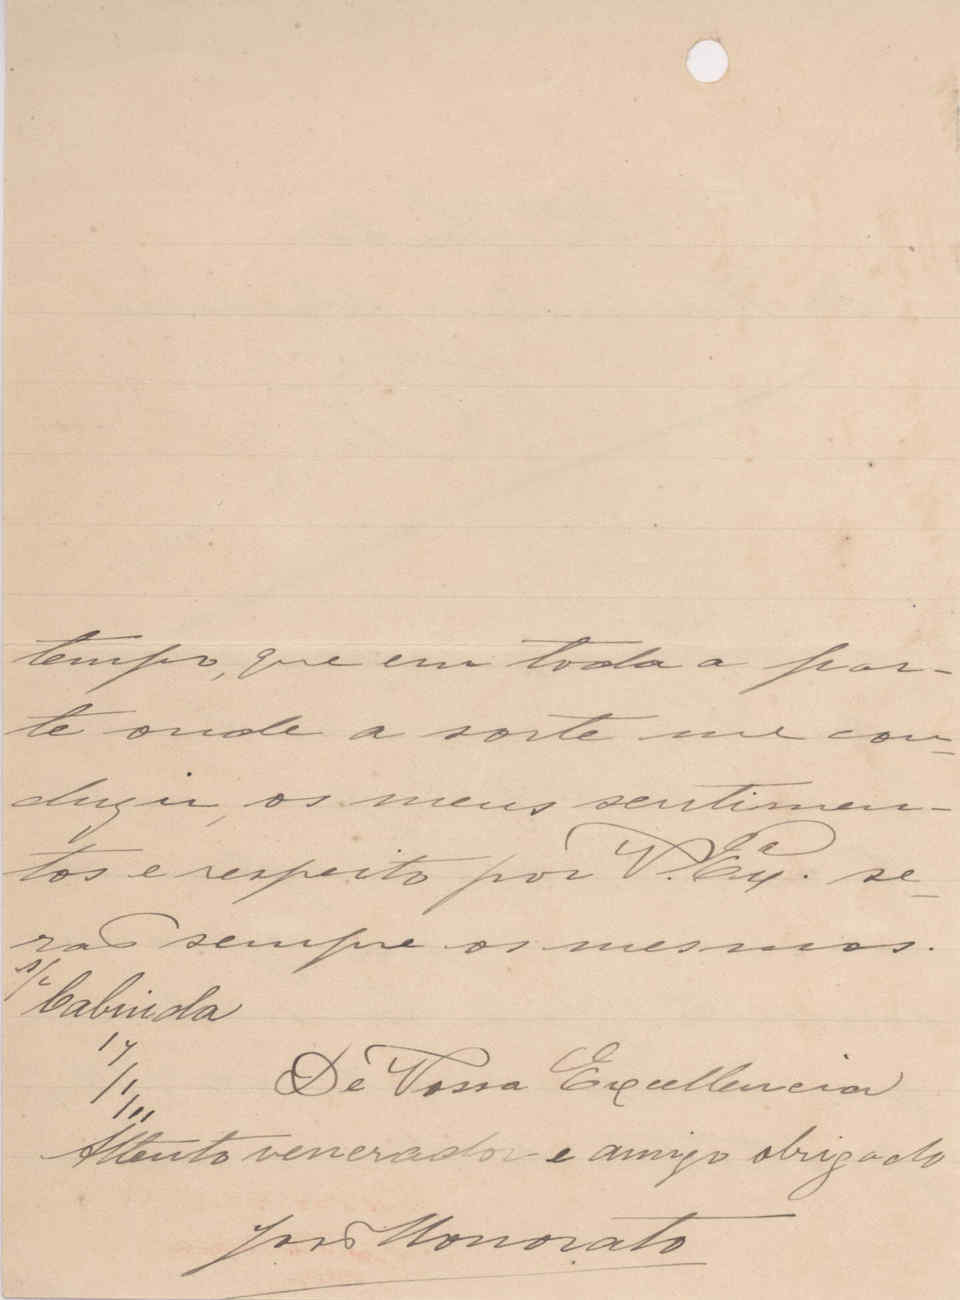 tempo, que em toda a par-
te onde a sorte me con-
duzir, os meus sentimen-
tos e respeito por V. Exª. se-
rão sempre os mesmos.
s/c Cabinda
17/1/111
De Vossa Excellencia
Attento venerador e amigo obrigado
José Honorato